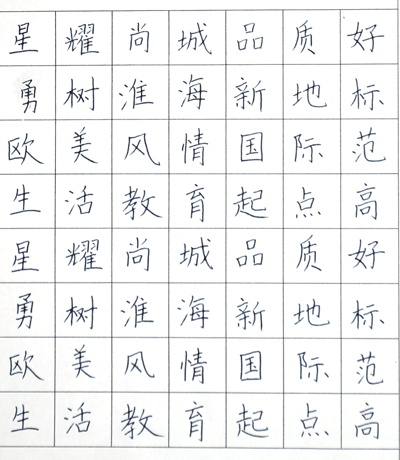 星耀尚城品质好
勇树淮海新地标
欧美风情国际范
生活教育起点高
星耀尚城品质好
勇树淮海新地标
欧美风情国际范
生活教育起点高